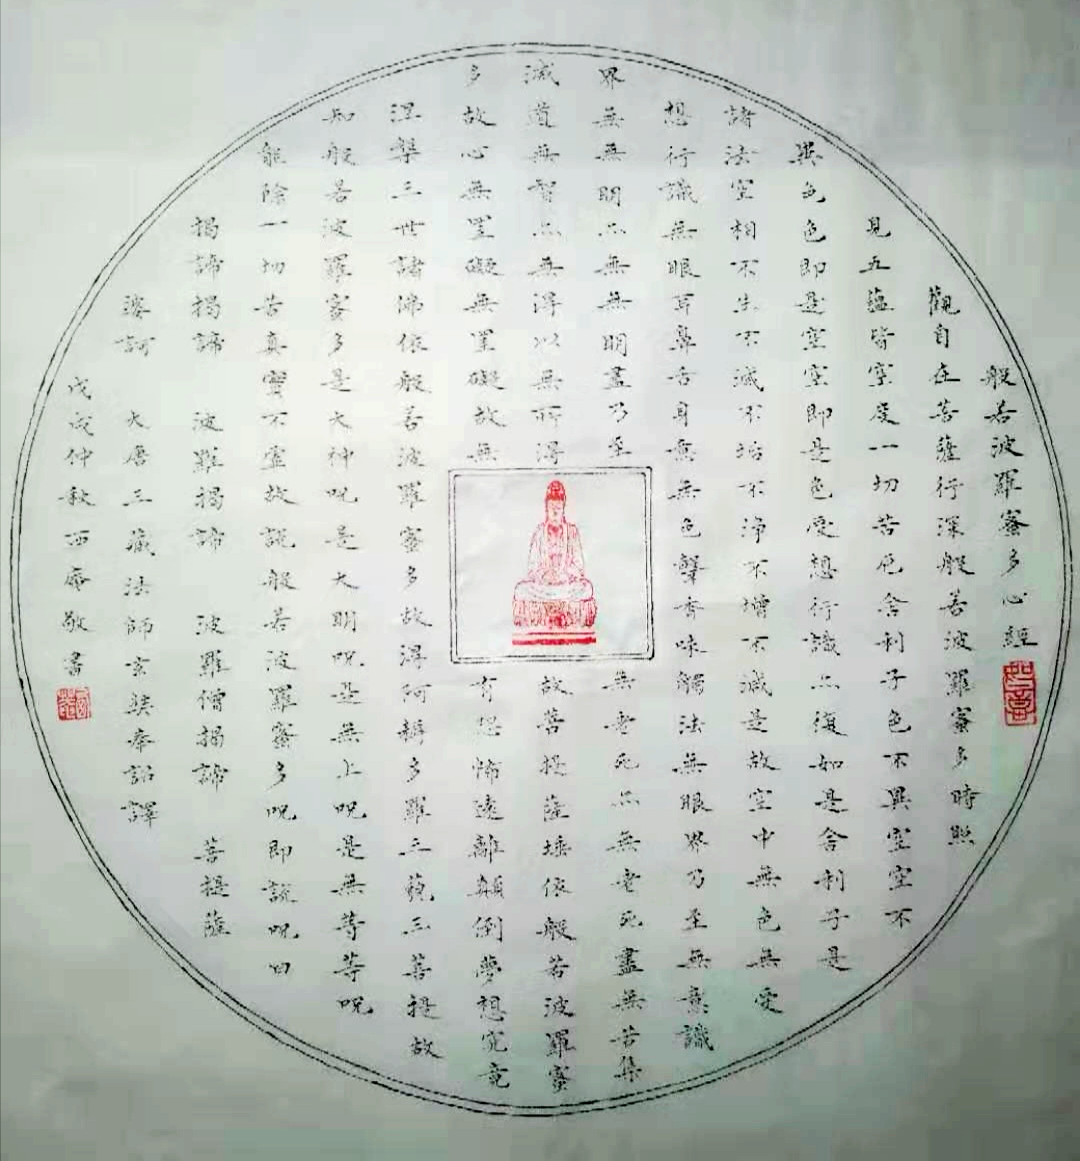 般若波羅蜜多心經
觀自在菩薩行深般若波羅蜜多時照
見五蘊皆空度一切苦厄舍利子色不異空空不
異色色即是空空即是色受想行識亦復如是舍利子是
諸法空相不生不滅不垢不淨不增不減是故空中無色無受
想行識無眼耳鼻舌身意無色聲香味觸法無眼界乃至無意識
界無無明亦無無明盡乃至無老死亦無老死盡無苦集
滅道無智亦無得以無所得故菩提薩埵依般若波羅蜜
多故心無罣礙無罣礙故無有恐怖遠離顛倒夢想究竟
涅槃三世諸佛依般若波羅蜜多故得阿耨多羅三藐三菩提故
知般若波羅蜜多是大神呪是大明呪是無上呪是無等等呪
能除一切苦真實不虛故說般若波羅蜜多呪即說呪曰
揭諦揭諦 波羅揭諦 波羅僧揭諦 菩提薩
婆訶 大唐三藏法師玄奘奉詔譯
戊戌仲秋西庵敬書